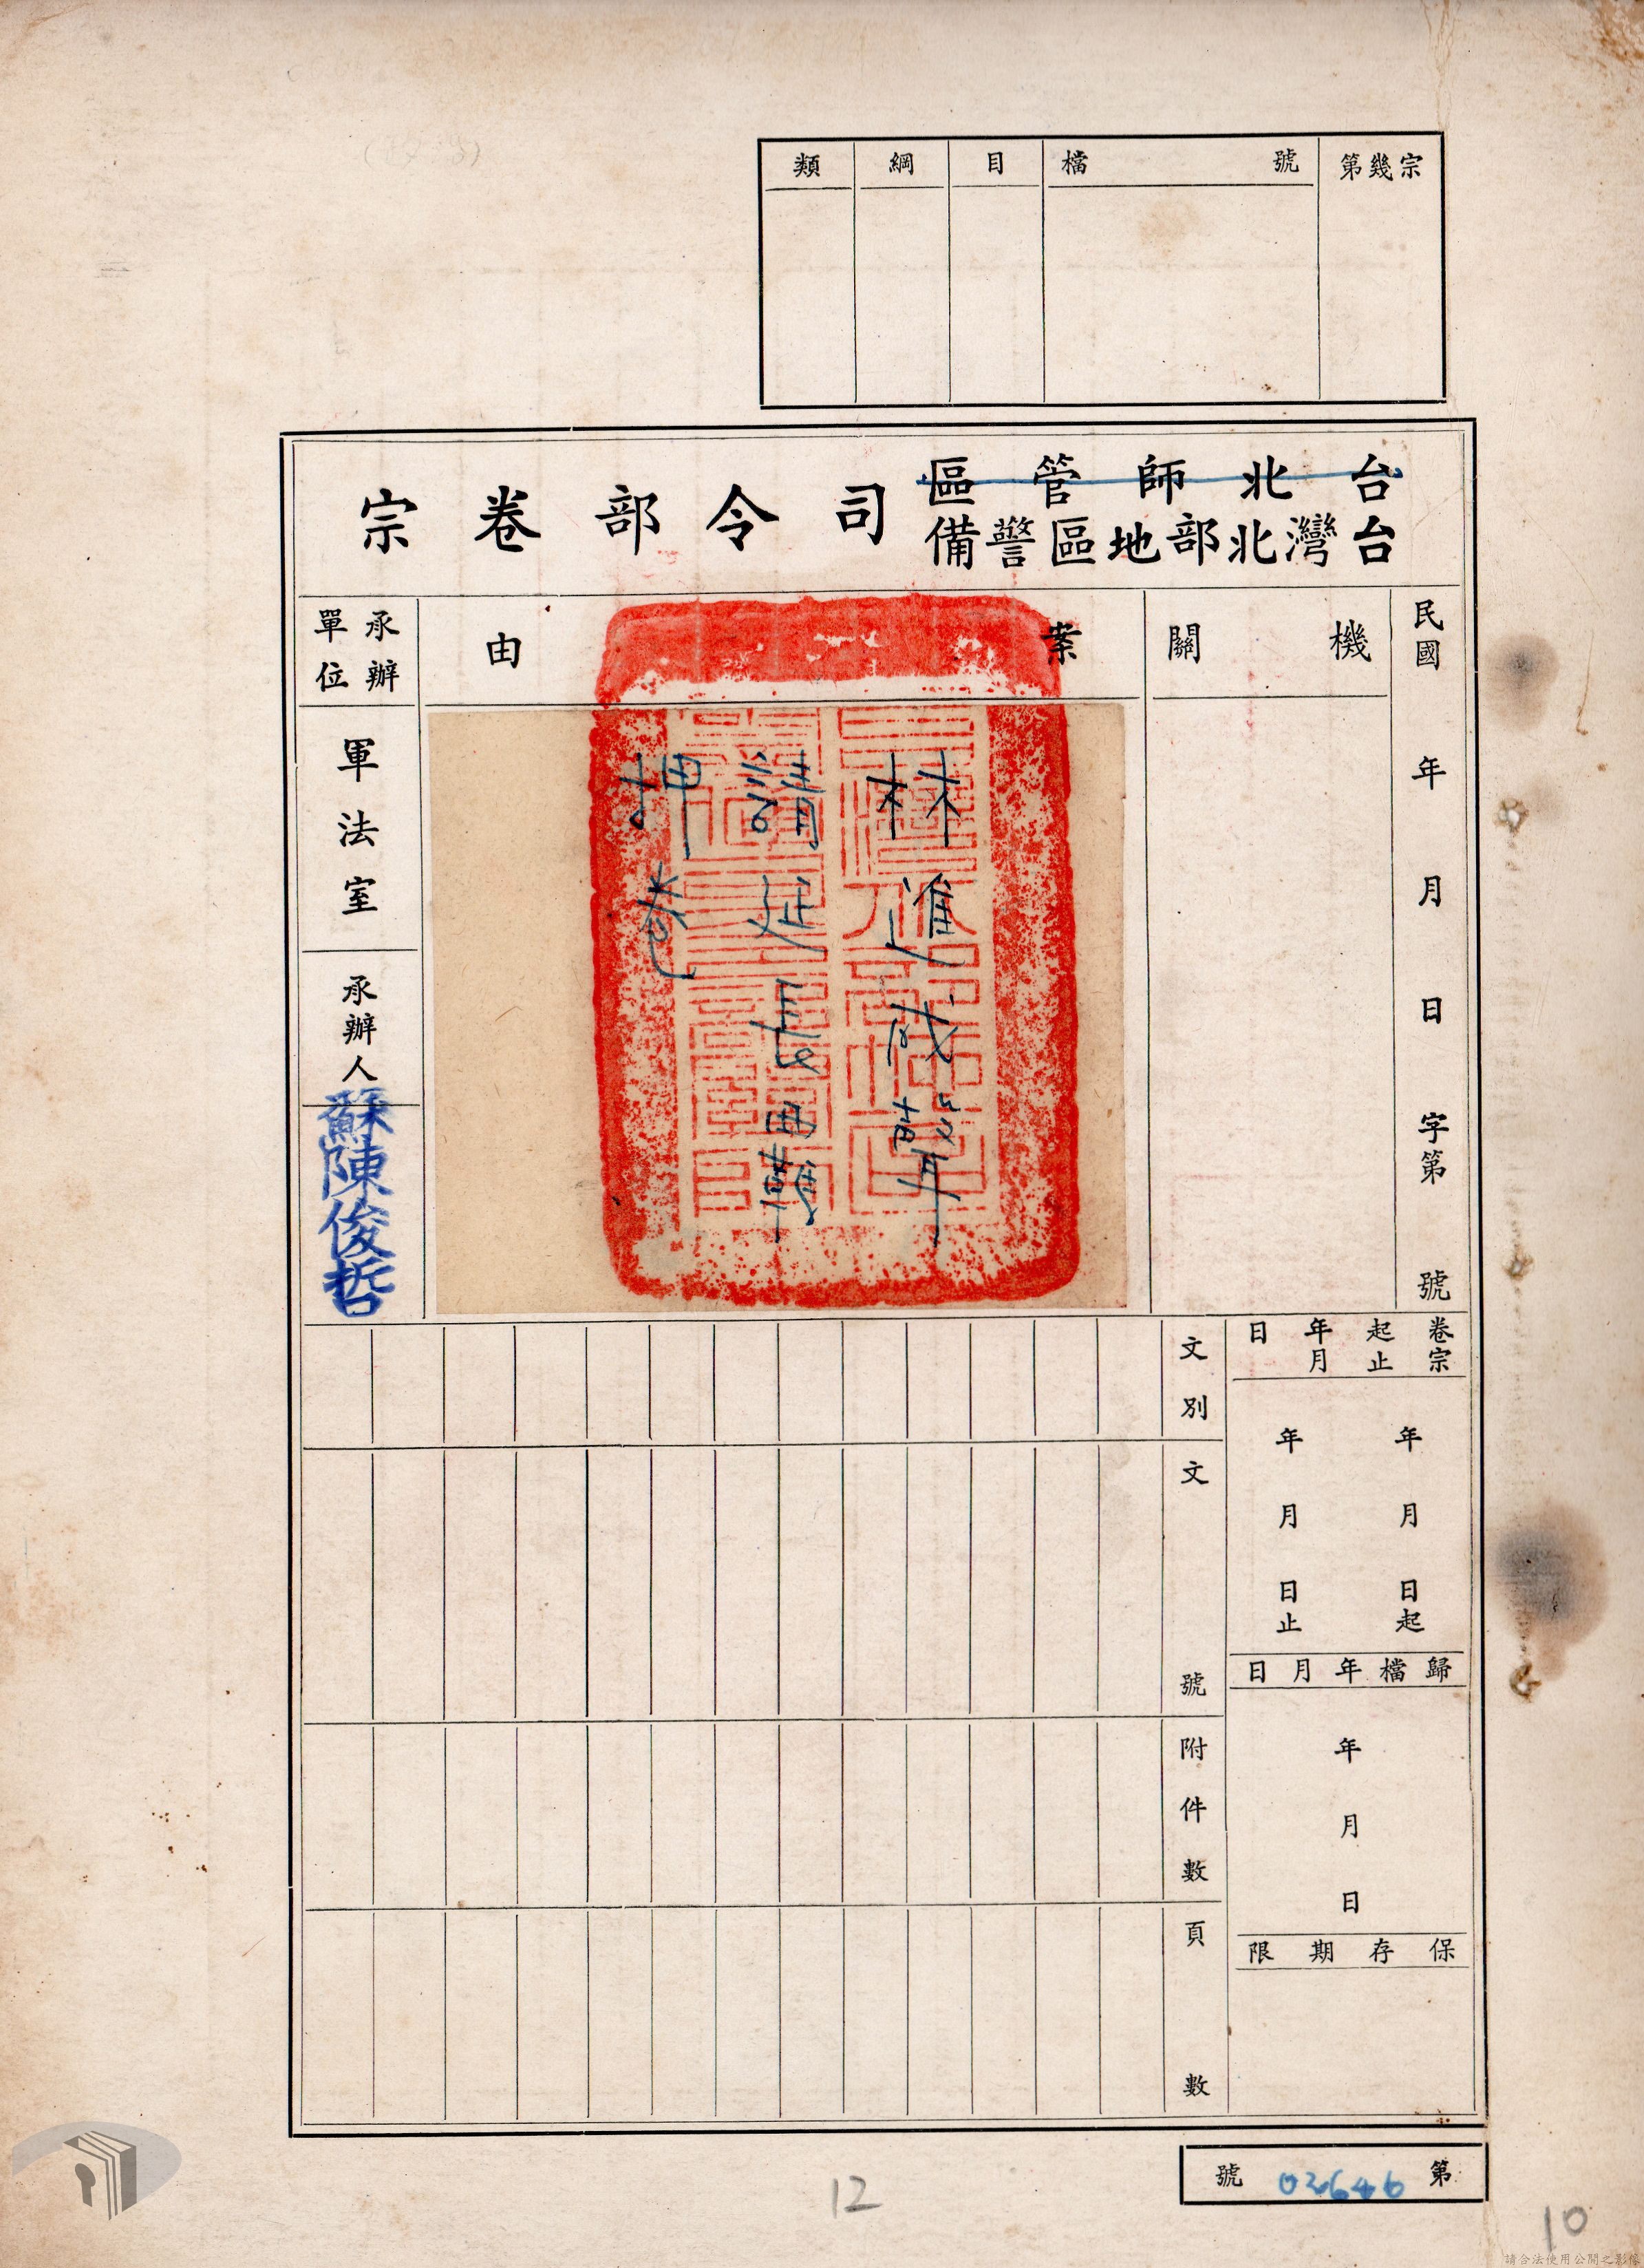 類 綱 目 檔號 第幾宗
台北師管區
台灣北部地區警備
司令部卷宗
民國 年 月 日 字第 號
機關
案由
林進成聲
請延長羈
押卷
承辦單位
軍法室
承辦人
蘇陳俊哲
卷宗起止年月日
年 月 日起
年 月 日止
歸檔年月日
年 月 日
保存期限
文別
文號
附件數
頁數
第 02646 號
12
10
請合法使用公開之影像